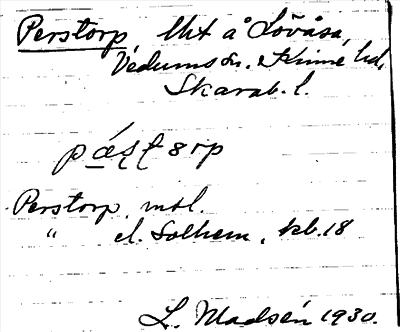 Perstorp Uht å Lövåsa,
Vedums sn. Kinne hd,
Skarab. l.
pǽṣṭ8rp
Perstorp, mtl.
" el. Solhem, kb. 18
L. Madsén 1930.